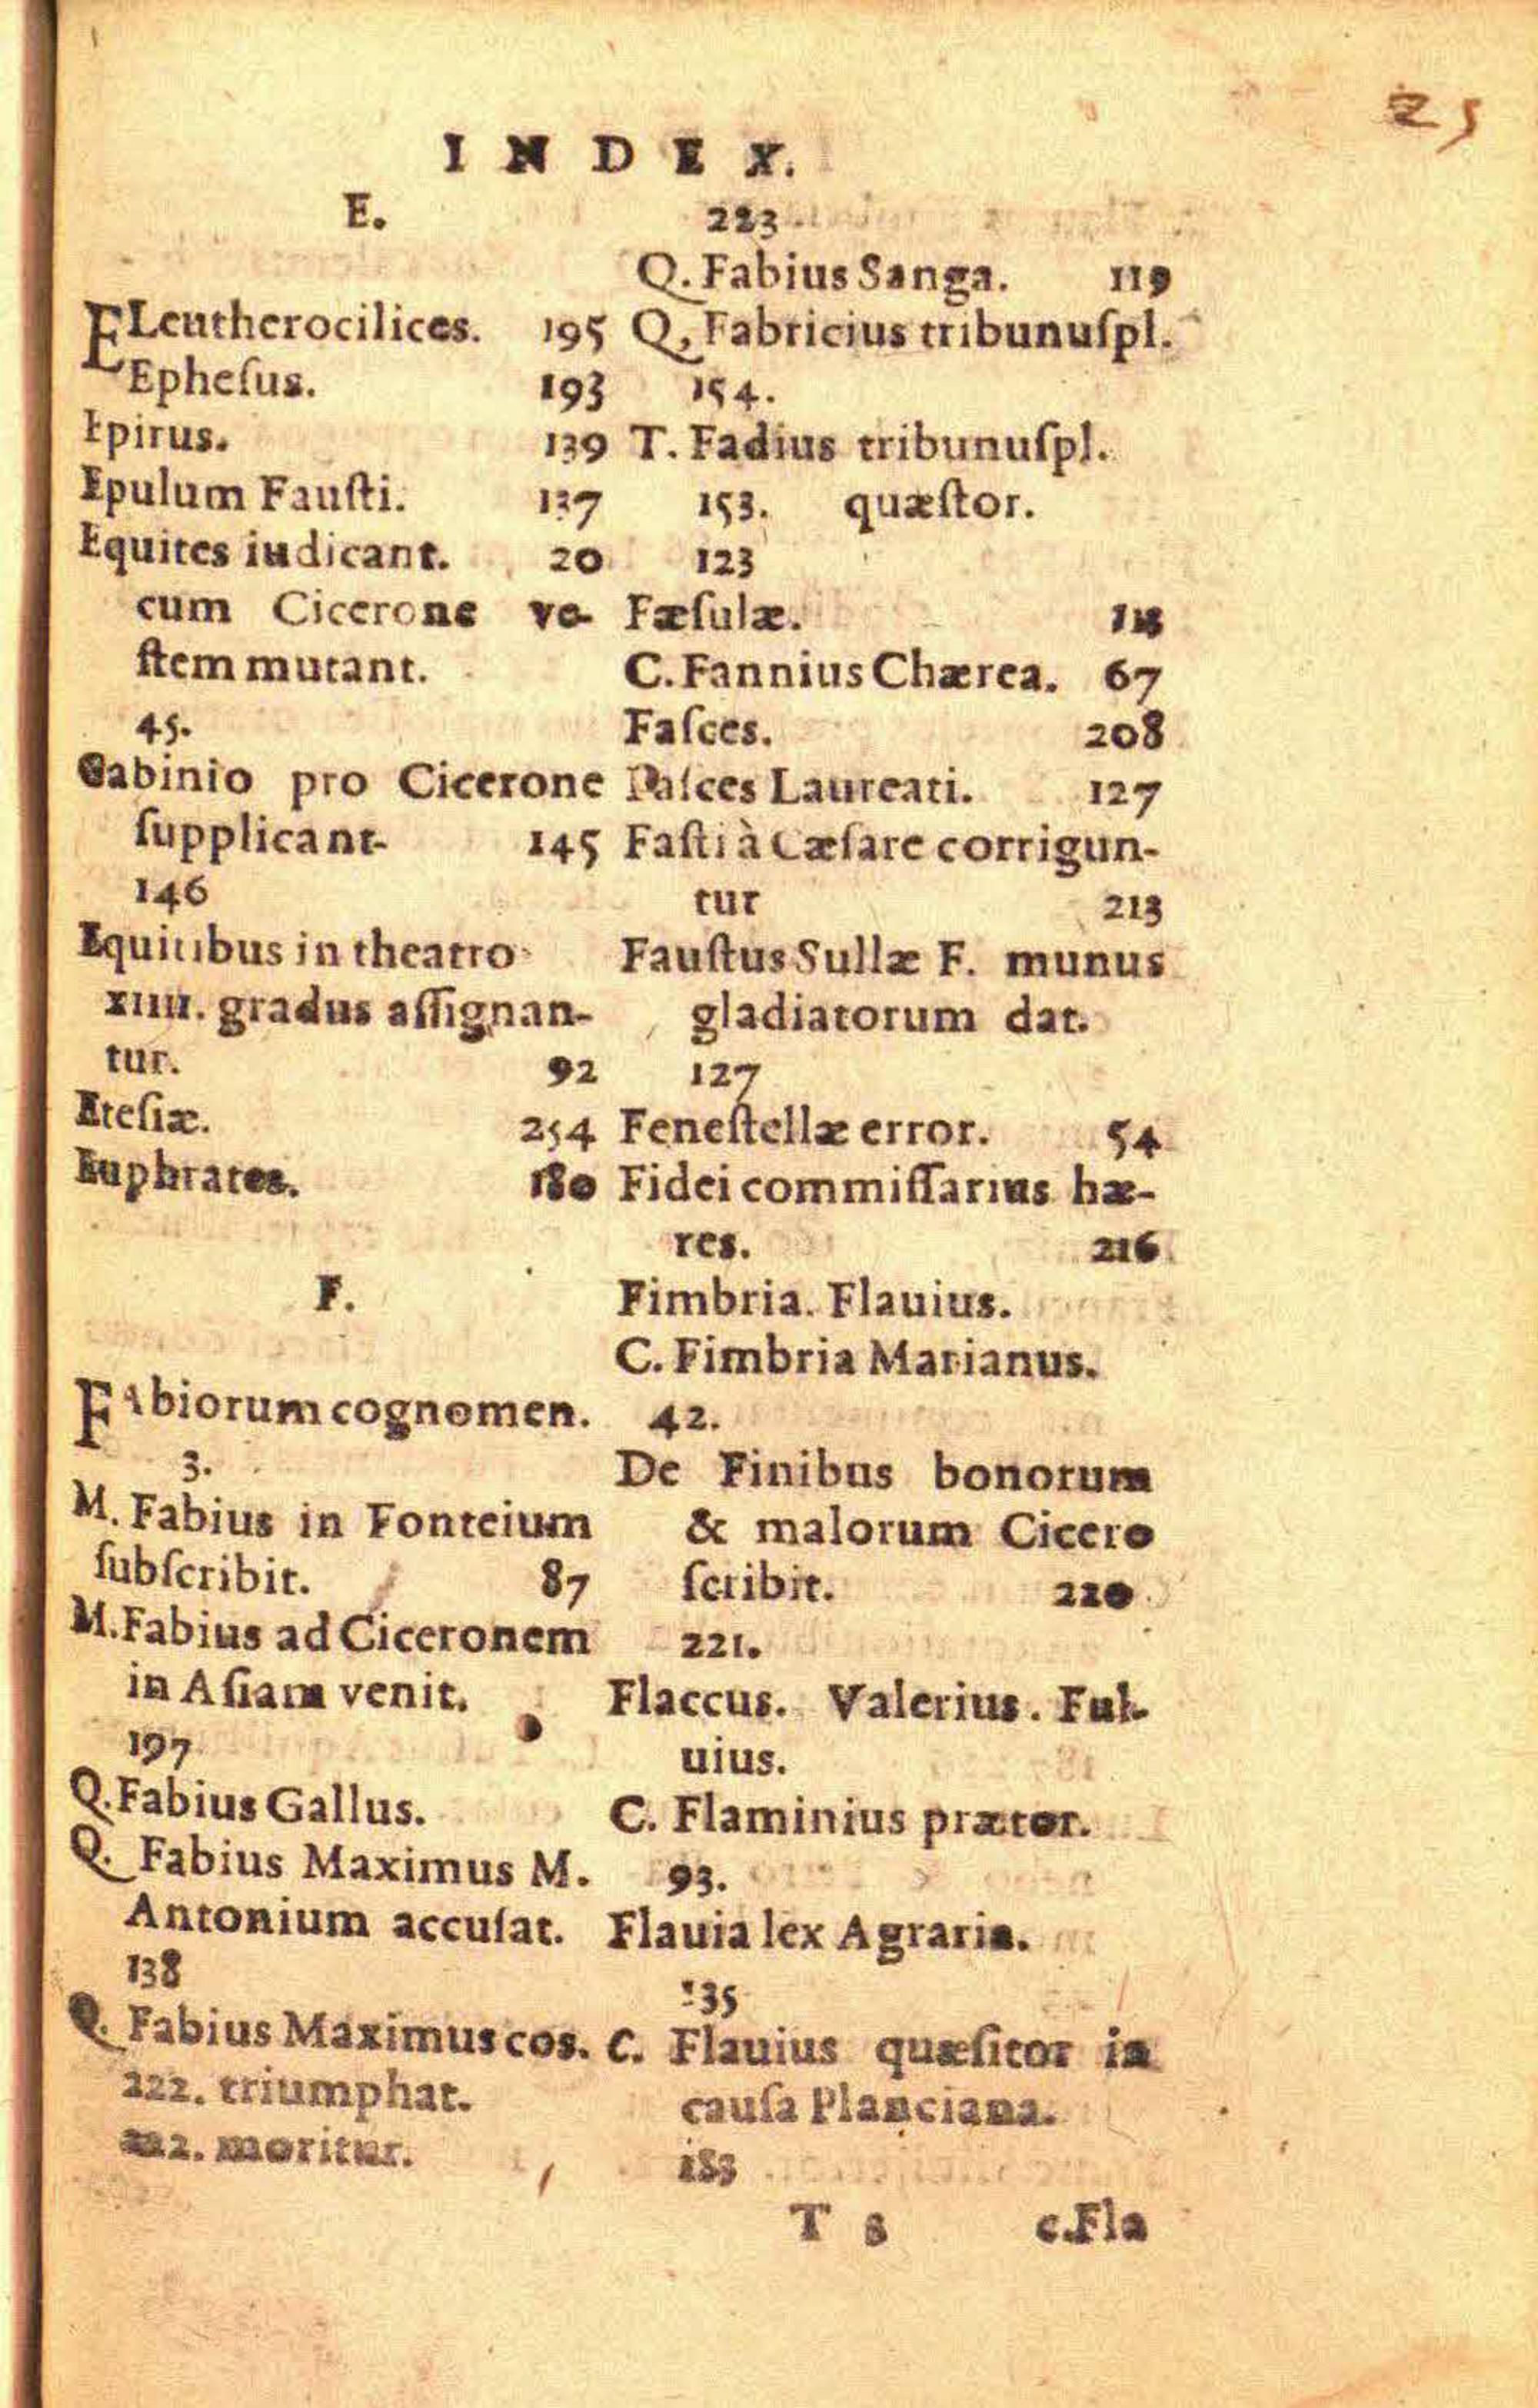 25
INDEX.
E.
ELeutherocilices. 195
Epheſus. 193
Epirus. 139
Epulum Fauſti. 137
Equites iudicant. 20
cum Cicerone ve-
ſtem mutant.
45.
Gabinio pro Cicerone
ſupplicant- 145
146
Equitibus in theatro
XIIII. gradus aſſignan-
tur. 92
Eteſiæ. 254
Euphrates. 180
F.
FAbiorum cognomen.
3.
M. Fabius in Fonteium
ſubſcribit. 87
M. Fabius ad Ciceronem
in Aſiam venit.
197
Q. Fabius Gallus.
Q. Fabius Maximus M.
Antonium accuſat.
138
Q. Fabius Maximus cos.
222. triumphat.
222. moritur.
223
Q. Fabius Sanga. 119
Q, Fabricius tribunuſpl.
154.
T. Fadius tribunuſpl.
153. quæſtor.
123
Fæſulæ.
C. Fannius Chærea. 67
Faſces. 208
Faſces Laureati. 127
Faſti à Cæſare corrigun-
tur 213
Fauſtus Sullæ F. munus
gladiatorum dat.
127
Feneſtellæ error. 54
Fidei commiſſarius hæ-
res. 216
Fimbria. Flauius.
C. Fimbria Marianus.
42.
De Finibus bonorum
& malorum Cicero
ſcribit. 220
221.
Flaccus. Valerius. Ful-
uius.
C. Flaminius prætor.
93.
Flauia lex Agraria.
135
C. Flauius quæſitor in
cauſa Planciana.
183
T s c.Fla